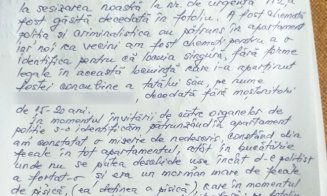 la sesizarea noastră la nr. de urgență 112, a
fost găsită decedată în fotoliu. A fost chemată
poliția și criminalistica au pătruns în apartament
iar noi ca vecini am fost chemați pentru a o
identifica pentru că locuia singură, fără forme
legale în această locuință care i-a aparținut
fostei concubine a tatălui său, pe nume
, decedată fără moștenitori
de 15-20 ani.
În momentul invitării de către organelor de
poliție s-o identificăm pătrunzând în apartament
am constatat o mizerie de nedescris, constând din
fecale în tot apartamentul, atât în bucătărie
unde nu se putea deschide ușa încât d-l polițist
a forțat-o și era un morman mare de fecale
de pisică, (ea deținea o pisică), care în momentul